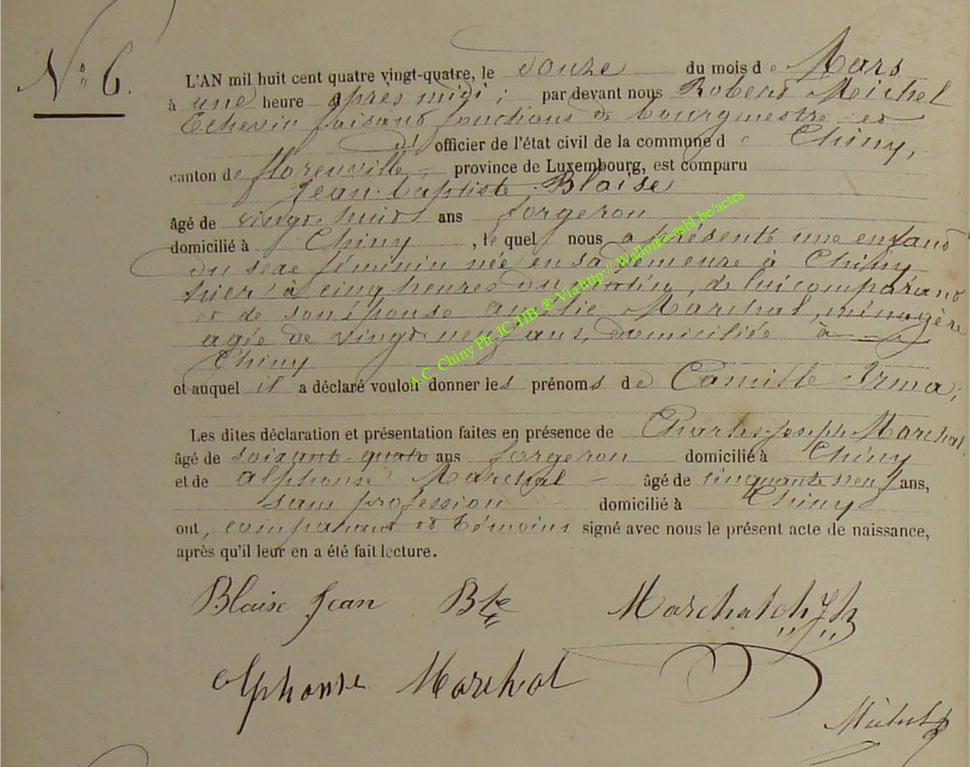 N° 6.
L'AN mil huit cent quatre vingt-quatre, le douze du mois de Mars
à une heure après midi ; par devant nous Robert Michel
Echevin faisant fonctions de bourgmestre et
d' officier de l'état civil de la commune de Chiny,
canton de florenville, province de Luxembourg, est comparu
Jean-baptiste Blaise
âgé de vingt huit ans forgeron
domicilié à Chiny, le quel nous a présenté une enfant
du sexe féminin née en sa demeure à Chiny
hier à cinq heures du matin, de lui comparant
et de son épouse Marchal, ménagère
agée de vingt neuf ans, domiciliée à
Chiny
et auquel il a déclaré vouloir donner les prénoms de Camille Irma,
Les dites déclaration et présentation faites en présence de Charles-Joseph Marchal,
âgé de soixante-quatre ans forgeron domicilié à Chiny
et de alphonse Marchal - âgé de cinquante neuf ans,
sans profession - domicilié à Chiny
ont, comparant et témoins signé avec nous le présent acte de naissance,
après qu'il leur en a été fait lecture.
Blaise Jean Bte Marchal Ch Jh
alphonse Marchal
Michel
A.C. Chiny Ph. JC/HB ® Via http://Wallonia-asbl.be/actes